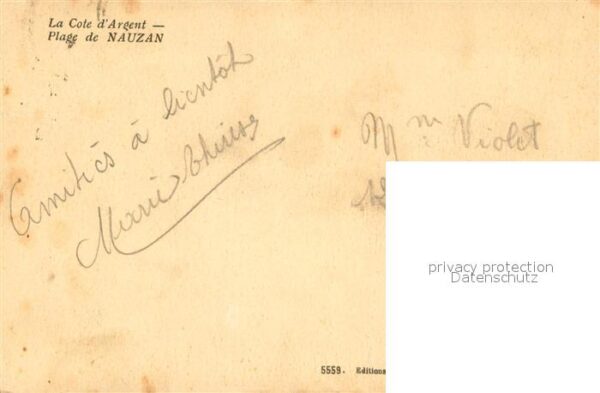 La Cote d'Argent —
Plage de NAUZAN
Amitiés à bientôt
Marie Thérèse
Mme Violet
privacy protection
Datenschutz
5559. Editions